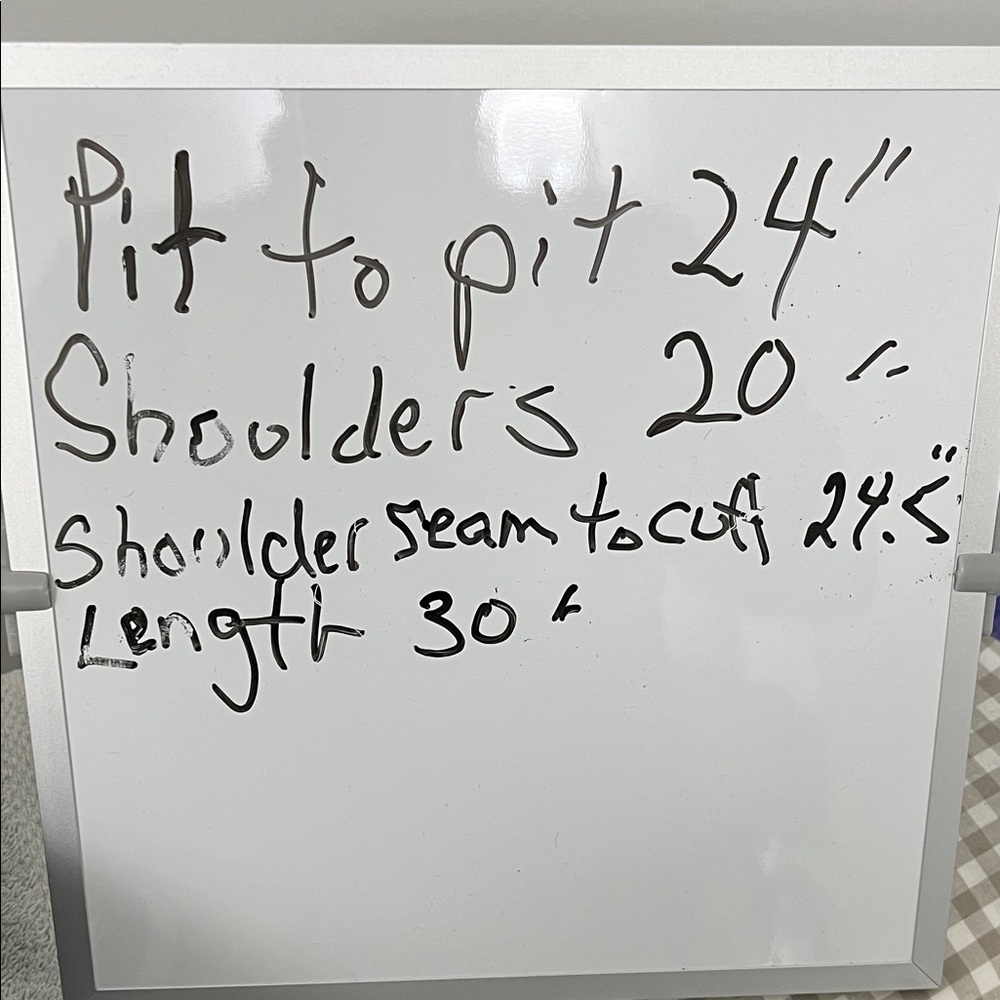 Pit to pit 24"
Shoulders 20"
Shoulder seam to cuff 24.5"
Length 30"